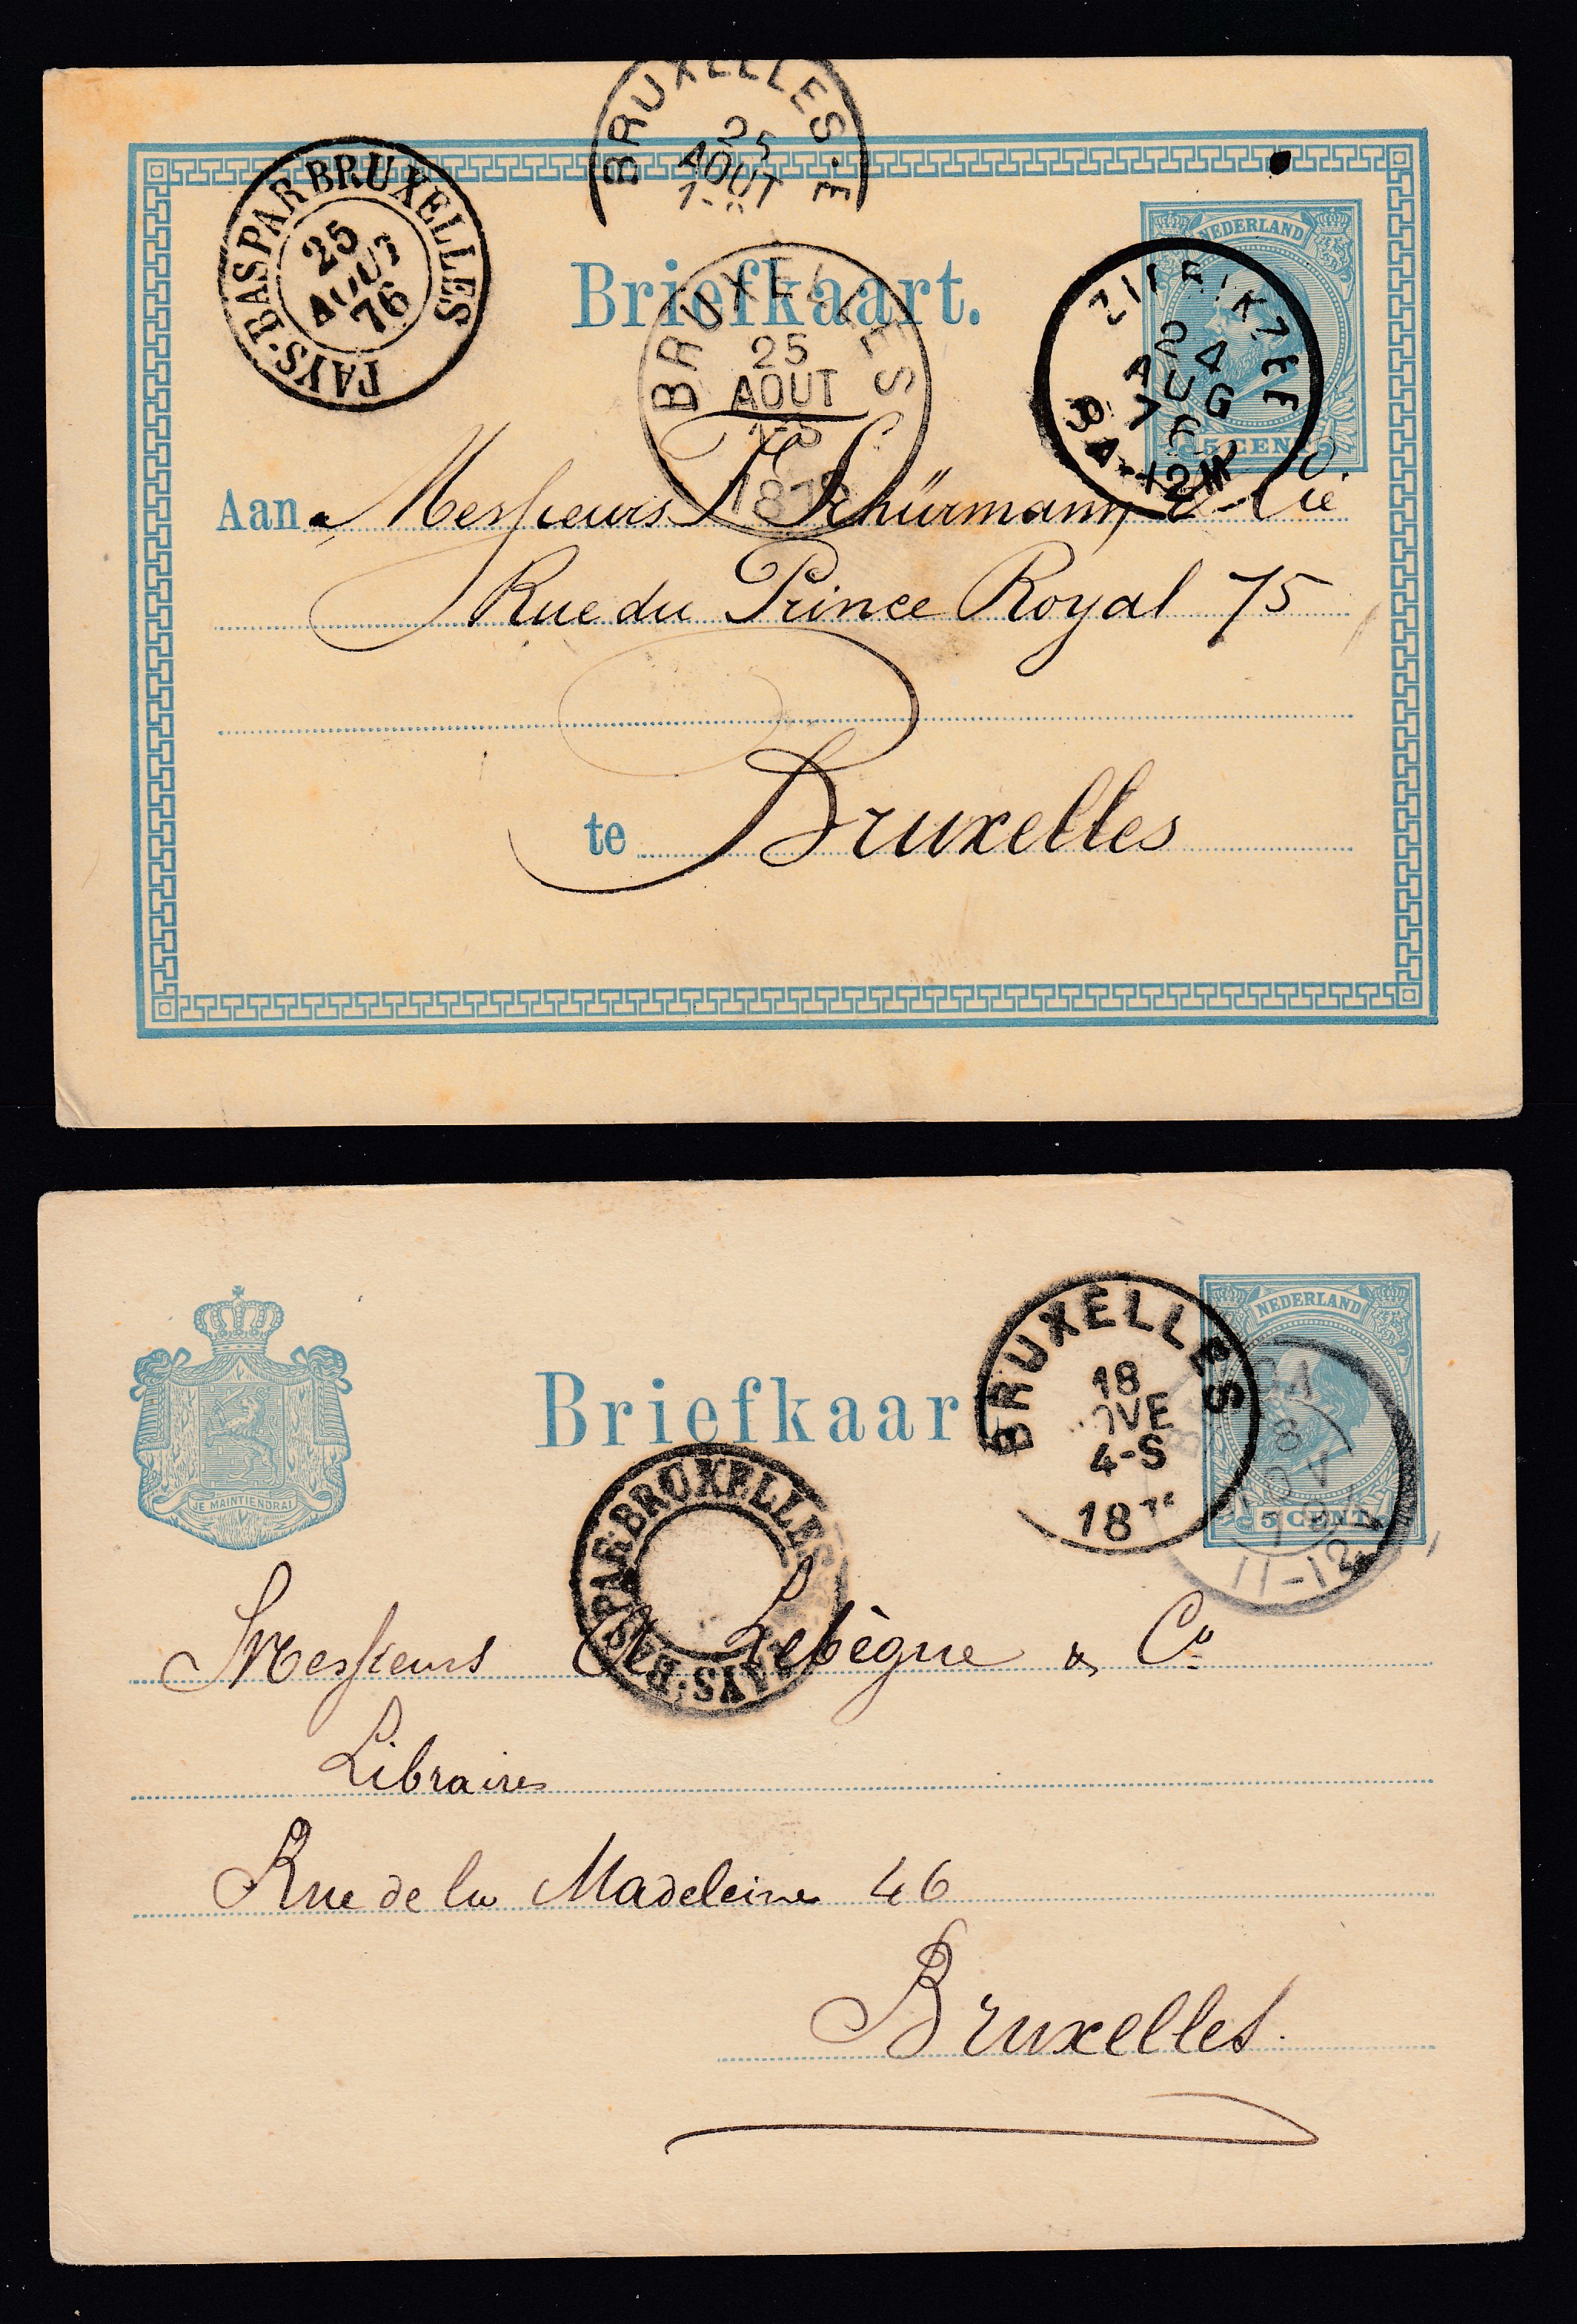 BRUXELLES·E
25
AOUT
PAYS-BAS PAR BRUXELLES
25
AOUT
76
NEDERLAND
Briefkaart.
BRUXELLES
25
AOUT
ZIERIKZEE
24
AUG
76
8A-12M
5 CENT
Aan Messieurs Schürmann & Cie
Rue du Prince Royal 75
te Bruxelles
NEDERLAND
BRUXELLES
18
4-S
Briefkaart
JE MAINTIENDRAI
11-12
5 CENT
PAYS-BAS PAR BRUXELLES
Messieurs A Lebègue & Co
Libraires
Rue de la Madeleine 46
Bruxelles.